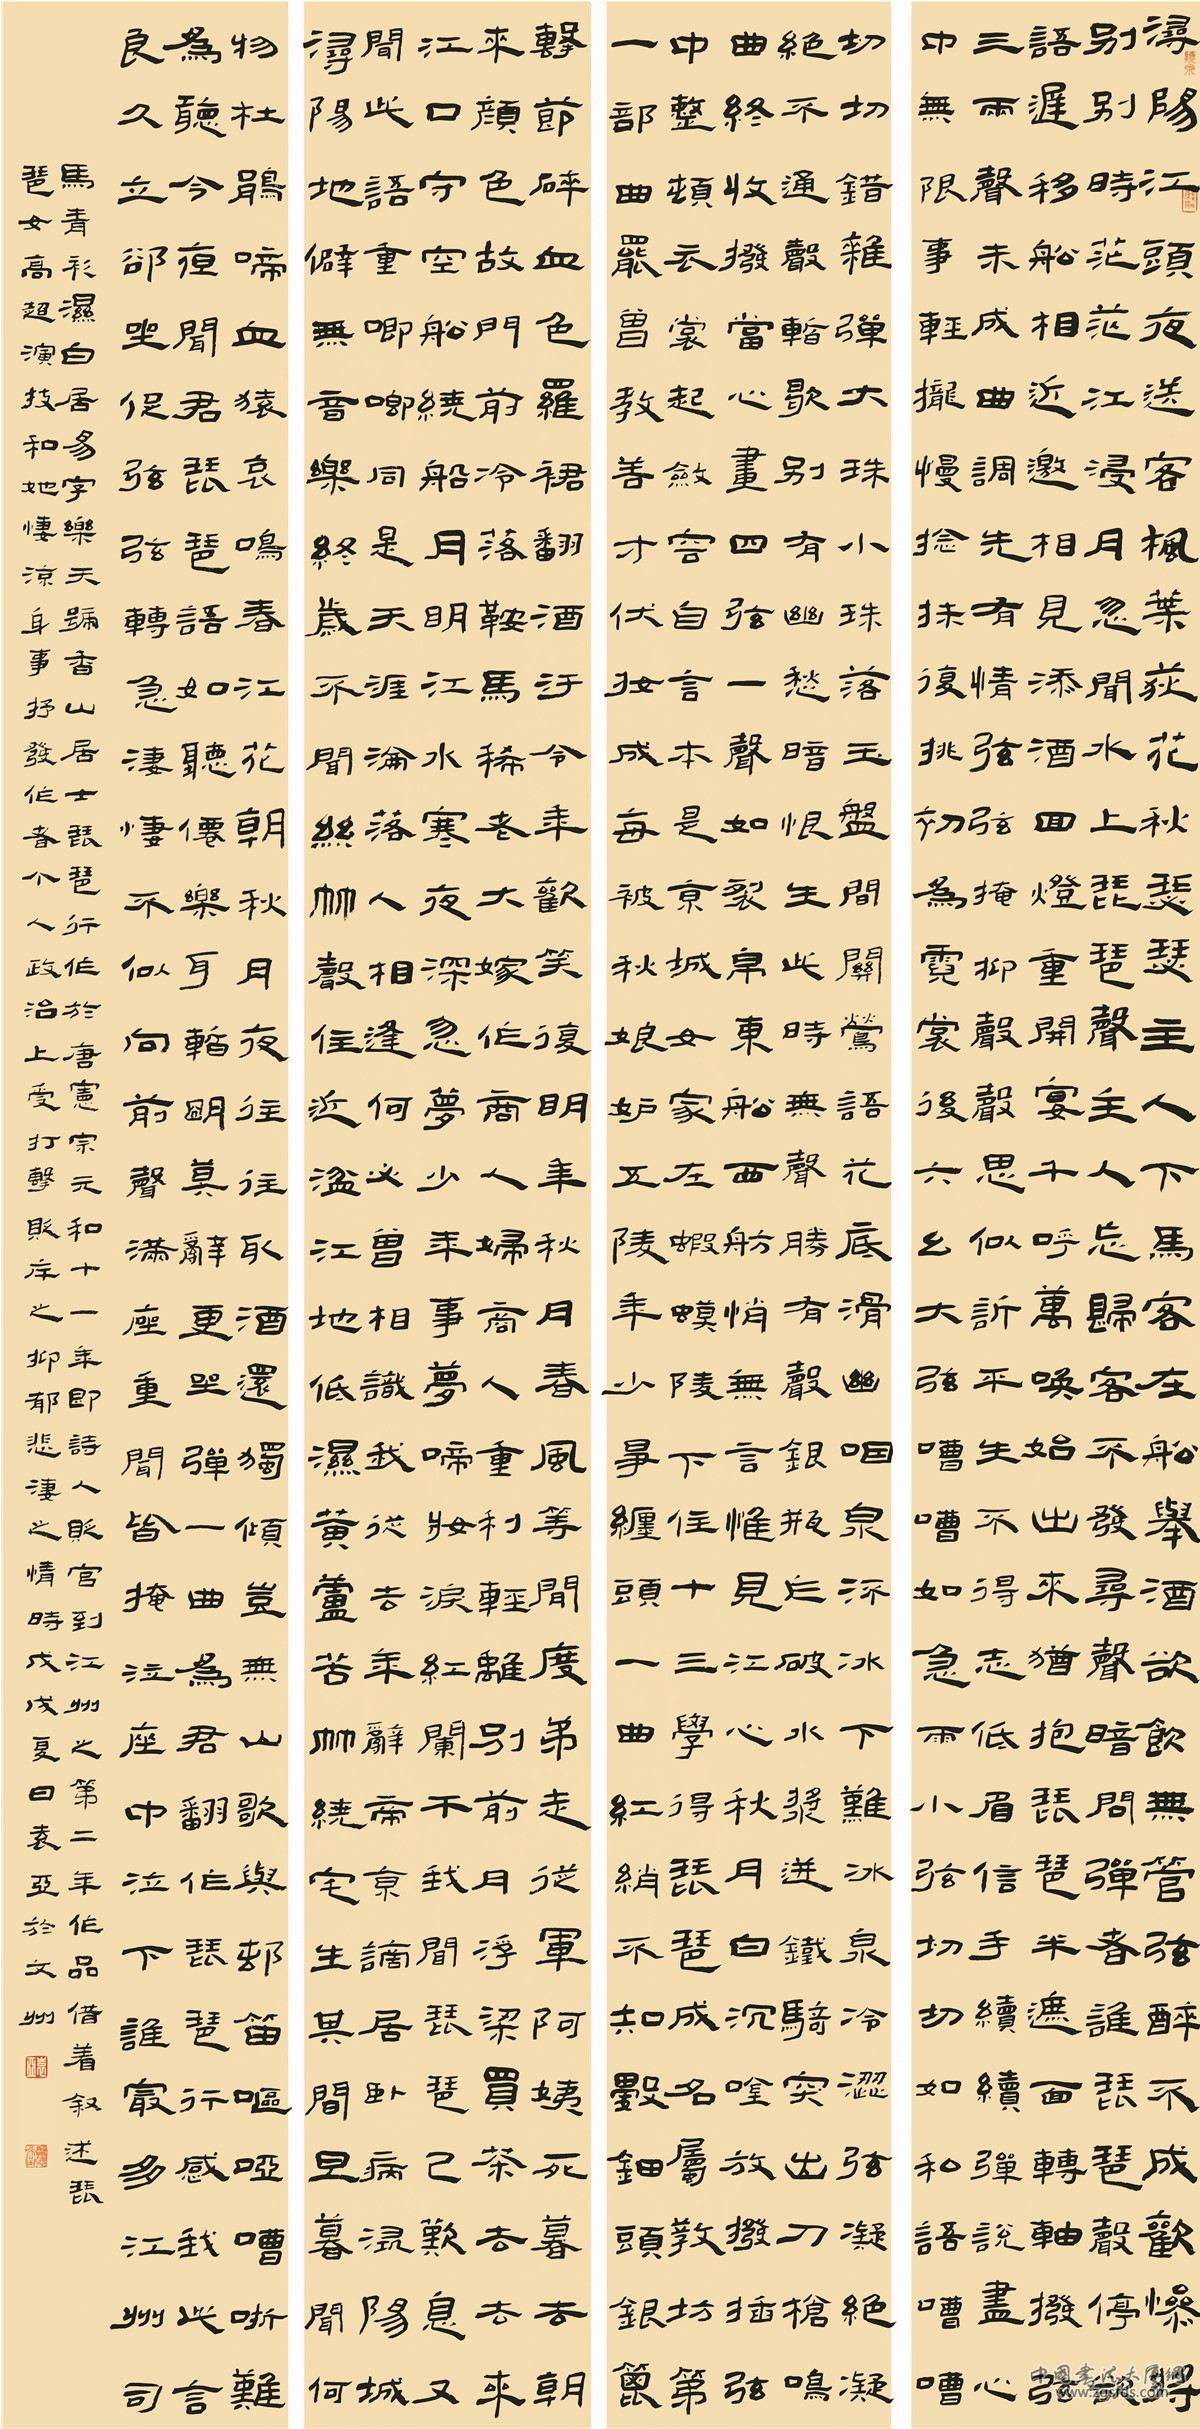 潯陽江頭夜送客楓葉荻花秋瑟瑟主人下馬客在船舉酒欲飲無管弦醉不成歡慘將
別別時茫茫江浸月忽聞水上琵琶聲主人忘歸客不發尋聲暗問彈者誰琵琶聲停欲
語遲移船相近邀相見添酒回燈重開宴千呼萬喚始出來猶抱琵琶半遮面轉軸撥弦
三兩聲未成曲調先有情弦弦掩抑聲聲思似訴平生不得志低眉信手續續彈說盡心
中無限事輕攏慢捻抹復挑初為霓裳後六幺大弦嘈嘈如急雨小弦切切如私語嘈嘈
切切錯雜彈大珠小珠落玉盤間關鶯語花底滑幽咽泉流冰下難冰泉冷澀弦凝絕凝
絕不通聲暫歇別有幽愁暗恨生此時無聲勝有聲銀瓶乍破水漿迸鐵騎突出刀槍鳴
曲終收撥當心畫四弦一聲如裂帛東船西舫悄無言惟見江心秋月白沉吟放撥插弦
中整頓衣裳起斂容自言本是京城女家在蝦蟆陵下住十三學得琵琶成名屬教坊第
一部曲罷曾教善才伏妝成每被秋娘妒五陵年少爭纏頭一曲紅綃不知數鈿頭銀篦
擊節碎血色羅裙翻酒污今年歡笑復明年秋月春風等閒度弟走從軍阿姨死暮去朝
來顏色故門前冷落鞍馬稀老大嫁作商人婦商人重利輕離別前月浮梁買茶去去來
江口守空船繞船月明江水寒夜深忽夢少年事夢啼妝淚紅闌干我聞琵琶已歎息又
聞此語重唧唧同是天涯淪落人相逢何必曾相識我從去年辭帝京謫居臥病潯陽城
潯陽地僻無音樂終歲不聞絲竹聲住近湓江地低濕黃蘆苦竹繞宅生其間旦暮聞何
物杜鵑啼血猿哀鳴春江花朝秋月夜往往取酒還獨傾豈無山歌與村笛嘔啞嘈哳難
為聽今夜聞君琵琶語如聽僊樂耳暫明莫辭更坐彈一曲為君翻作琵琶行感我此言
良久立卻坐促弦弦轉急淒悽不似向前聲滿座重聞皆掩泣座中泣下誰最多江州司
馬青衫濕白居易字樂天號香山居士琵琶行作於唐憲宗元和十一年即詩人貶官到江州之第二年作品借着叙述琵
琶女高超演技和她悽涼身事抒發作者個人政治上受打擊貶斥之抑郁悲淒之情時戊戌夏日袁亞於文州
中国书法大展网
www.zgsfds.com